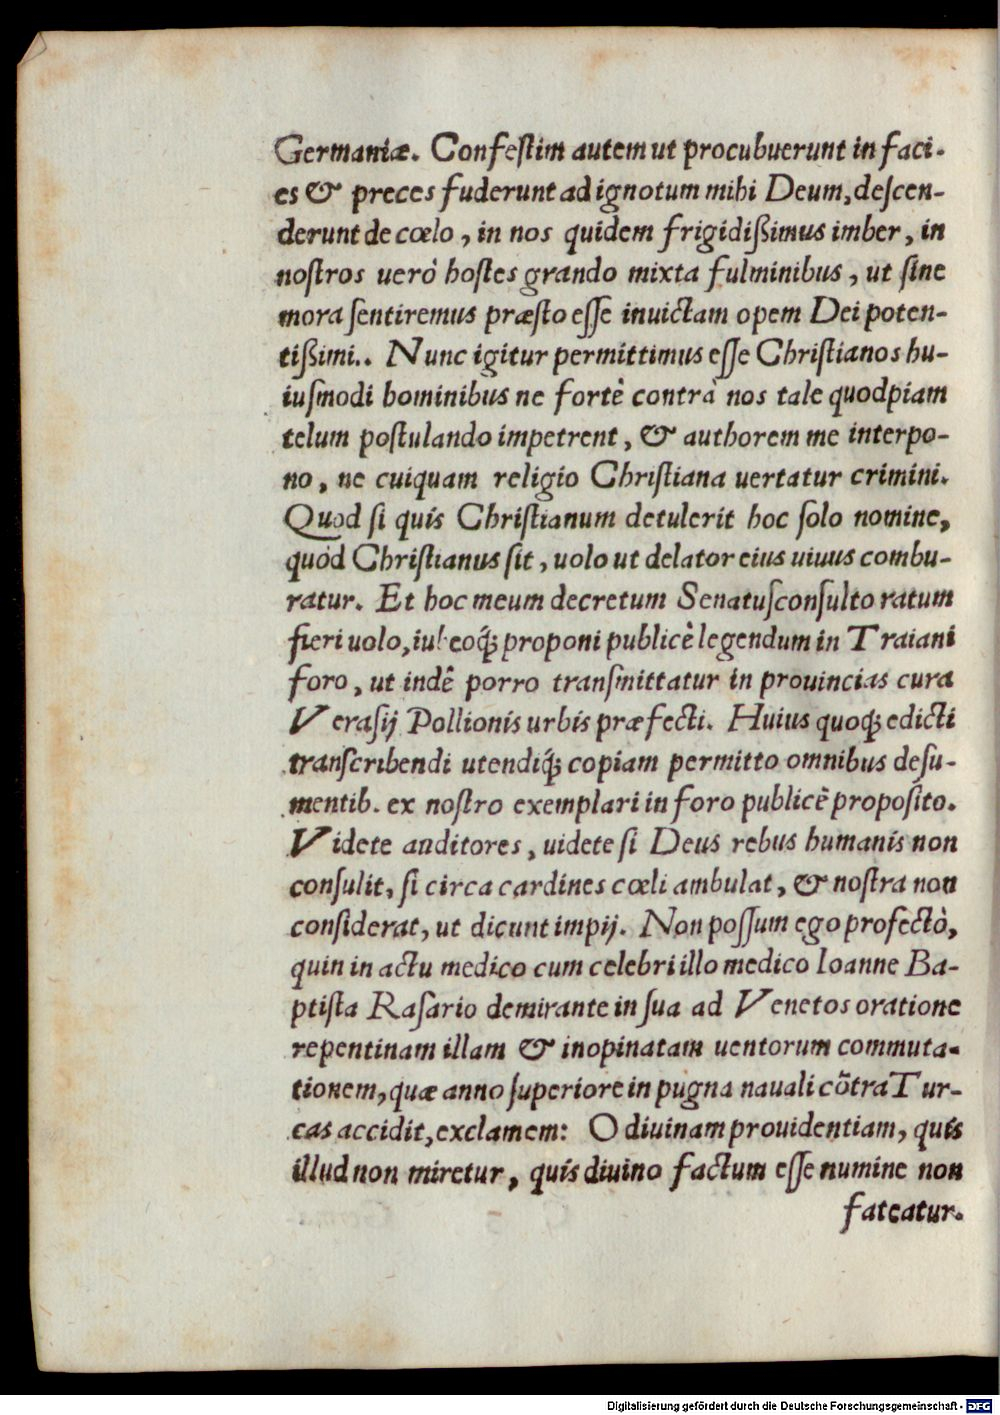 Germaniæ. Confestim autem ut procubuerunt in faci-
es & preces fuderunt ad ignotum mihi Deum, descen-
derunt de cœlo, in nos quidem frigidißimus imber, in
nostros uerò hostes grando mixta fulminibus, ut sine
mora sentiremus præsto esse inuictam opem Dei poten-
tißimi.. Nunc igitur permittimus esse Christianos hu-
iusmodi hominibus ne fortè contrà nos tale quodpiam
telum postulando impetrent, & authorem me interpo-
no, ne cuiquam religio Christiana uertatur crimini.
Quod si quis Christianum detulerit hoc solo nomine,
quòd Christianus sit, uolo ut delator eius uiuus combu-
ratur. Et hoc meum decretum Senatusconsulto ratum
fieri uolo, iubeoq́; proponi publicè legendum in Traiani
foro, ut indê porro transmittatur in prouincias cura
Verasij Pollionis urbis præfecti. Huius quoq́; edicti
transcribendi utendiq́; copiam permitto omnibus desu-
mentib. ex nostro exemplari in foro publicè proposito.
Videte auditores, uidete si Deus rebus humanis non
consulit, si circa cardines cœli ambulat, & nostra non
considerat, ut dicunt impij. Non possum ego profectò,
quin in actu medico cum celebri illo medico Ioanne Ba-
ptista Rasario demirante in sua ad Venetos oratione
repentinam illam & inopinatam uentorum commuta-
tionem, quæ anno superiore in pugna nauali cõtra Tur-
cas accidit, exclamem: O diuinam prouidentiam, quis
illud non miretur, quis diuino factum esse numine non
fateatur.
Digitalisierung gefördert durch die Deutsche Forschungsgemeinschaft - DFG